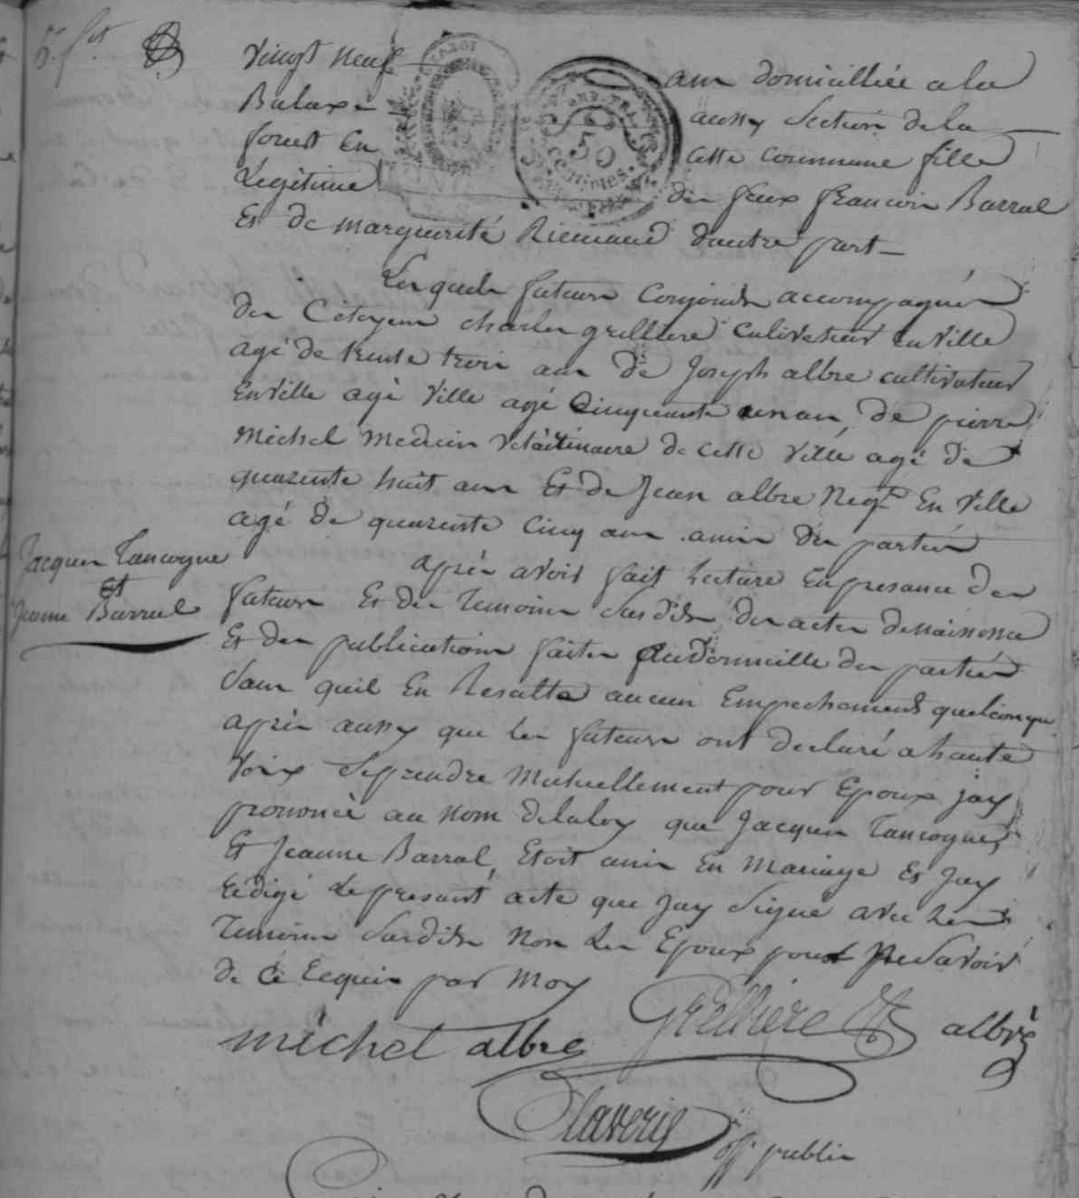 5.e f.et
vingt neuf ans domiciliée a la
Balaxe aussy Section de la
forest En cette commune fille
Legitime des feux francois Barral
Et de marguerite Ricmaud d'autre part
Lesquels futeurs Conjoinds accompagnés
des Citoyens charles grelliere culivateur en ville
agé de trente trois ans de Joseph albre cultivateur
En ville agé ville agé Cinquante un an, de pierre
michel medecin vetaitinaire de cette ville agé de
quarente huit ans Et de Jean albre Negt En ville
agé de quarente cinq ans amis des parties
Jacques Tancogne
Et
Jeanne Barral
après avoir fait lecture En presance des
futeurs Et des Temoins Susdits des actes de naissence
Et des publications faites au Domicille des parties
Sans quil En Resulte aucun Empechements quelconque
après aussy que les futeurs ont declaré a haute
Voix Se prendre Mutuellement pour Epoux jay
prononcé au nom de la loy que Jacques Tancogne
Et Jeanne Barral Etoit unis En Mariage Et Jay
Redigé le presant acte que jay Signé avec les
Temoins Susdits Non les Epoux pour ne Savoir
de Ce Requis par Moy
michel albre Grelliere albre
Claverie
off. public